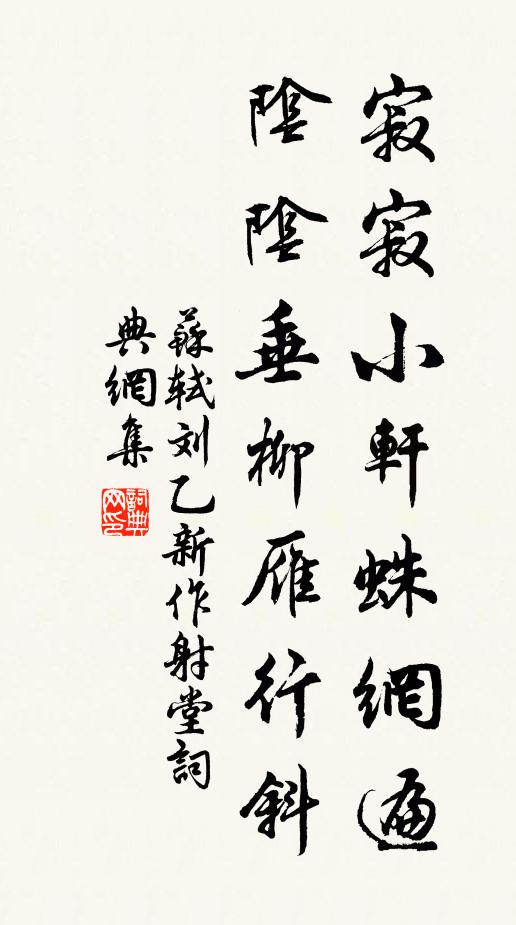 寂寂小軒蛛網遍
陰陰垂柳雁行斜
蘇軾刘乙新作射堂詞
典網集
詞典网印